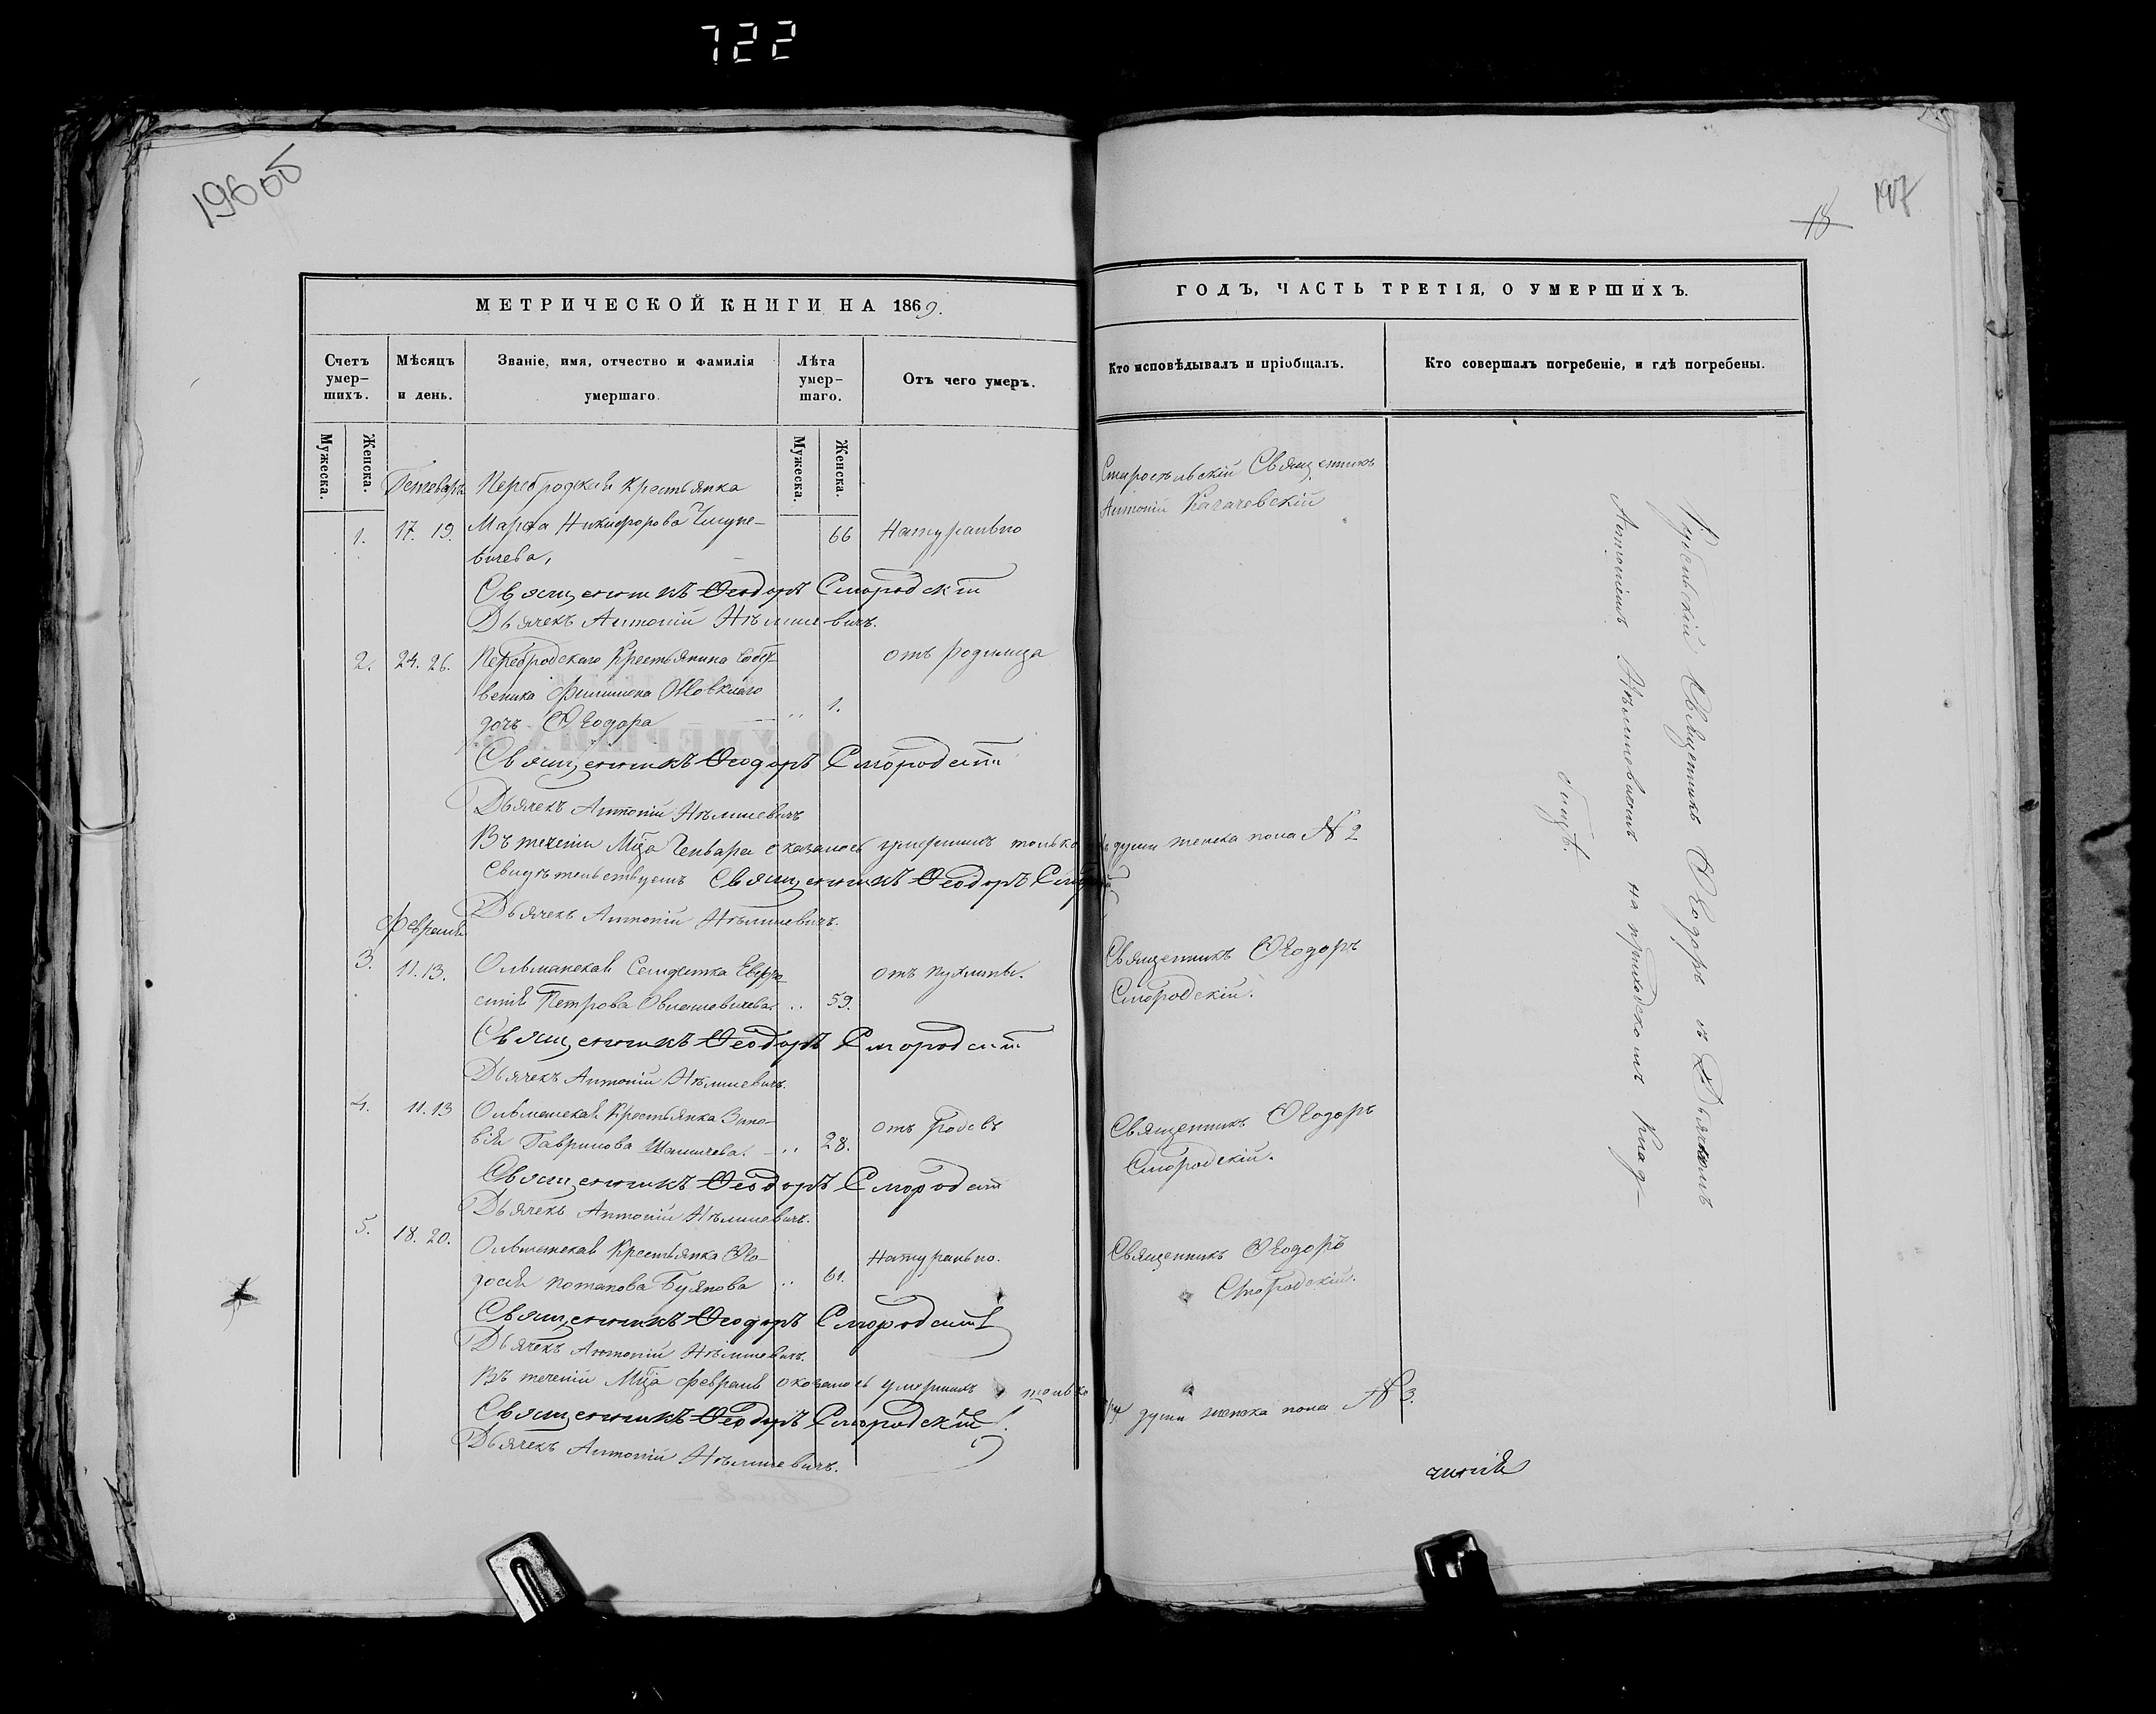 722
196об
197
18
МЕТРИЧЕСКОЙ КНИГИ НА 1869.
Счетъ умер-шихъ.
Мѣсяцъ и день.
Званіе, имя, отчество и фамилія умершаго.
Лѣта умер-шаго.
Отъ чего умеръ.
Мужеска.
Женска.
Мужеска.
Женска.
Генварь
Перебродская Крестьянка
1. 17. 19. Марѳа Никифорова 66 Натурально
вичева,
Священникъ Ѳеодоръ Смородскій
Дьячекъ Антоній Нѣмшевичъ.
2. 24. 26. Перебродскаго Крестьянина Собст- отъ родимца
веника Филимона
дочь Ѳеодора „ 1.
Священникъ Ѳеодоръ Смородскій
Дьячекъ Антоній Нѣмшевичъ
Въ теченіи Мца Генваря оказалось умершихъ только
Свидѣтельствуемъ Священникъ Ѳеодоръ
Дьячекъ Антоній Нѣмшевичъ.
Февраль
3. 11. 13. Ольманская Солдатка Евфро- отъ пухлины.
синія Петрова „ 59.
Священникъ Ѳеодоръ Смородскій
Дьячекъ Антоній Нѣмшевичъ.
4. 11. 13 Ольманская Крестьянка Зино- отъ родовъ
вія Гаврилова „ 28.
Священникъ Ѳеодоръ Смородскій
Дьячекъ Антоній Нѣмшевичъ.
5. 18. 20. Ольманская Крестьянка Ѳео- Натурально.
досія Потапова Буянова „ 61.
Священникъ Ѳеодоръ Смородскій
Дьячекъ Антоній Нѣмшевичъ.
Въ теченіи Мца Февраля оказалось умершихъ только
Священникъ Ѳеодоръ Смородскій
Дьячекъ Антоній Нѣмшевичъ.
ГОДЪ, ЧАСТЬ ТРЕТІЯ, О УМЕРШИХЪ.
Кто исповѣдывалъ и пріобщалъ.
Кто совершалъ погребеніе, и гдѣ погребены.
Старосельскій Священникъ
Антоній Качачевскій
души женска пола № 2
Священникъ Ѳеодоръ
Смородскій.
Священникъ Ѳеодоръ
Смородскій.
Священникъ Ѳеодоръ
Смородскій.
три души женска пола № 3.
Священникъ Ѳеодоръ съ Дьячкомъ
Антоніемъ Нѣмшевичемъ на приходскомъ Клад-
бищѣ.